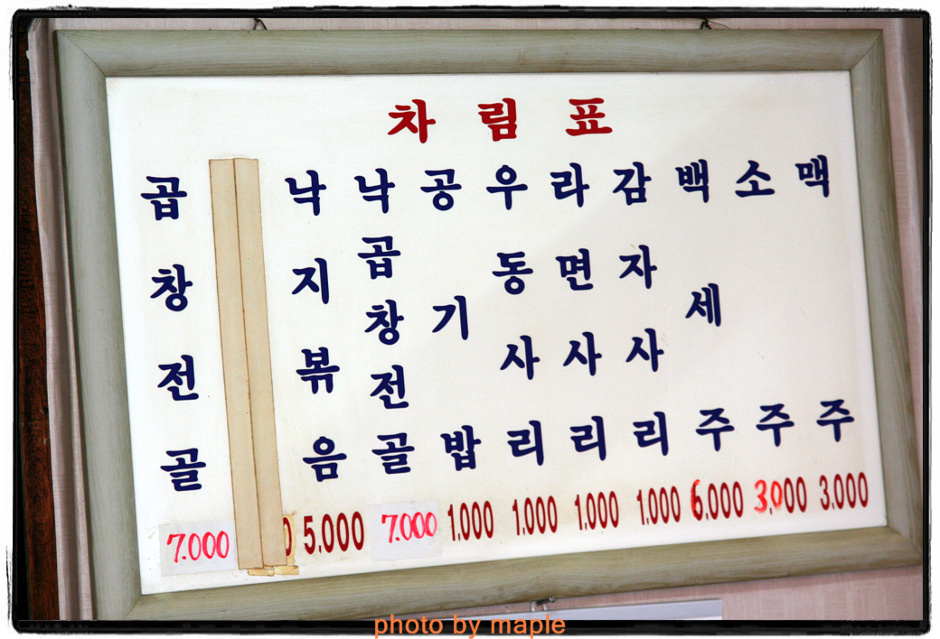 차림표
곱창전골 7.000
낙지볶음 5.000
낙곱창전골 7.000
공기밥 1.000
우동사리 1.000
라면사리 1.000
감자사리 1.000
백세주 6.000
소주 3.000
맥주 3.000
photo by maple